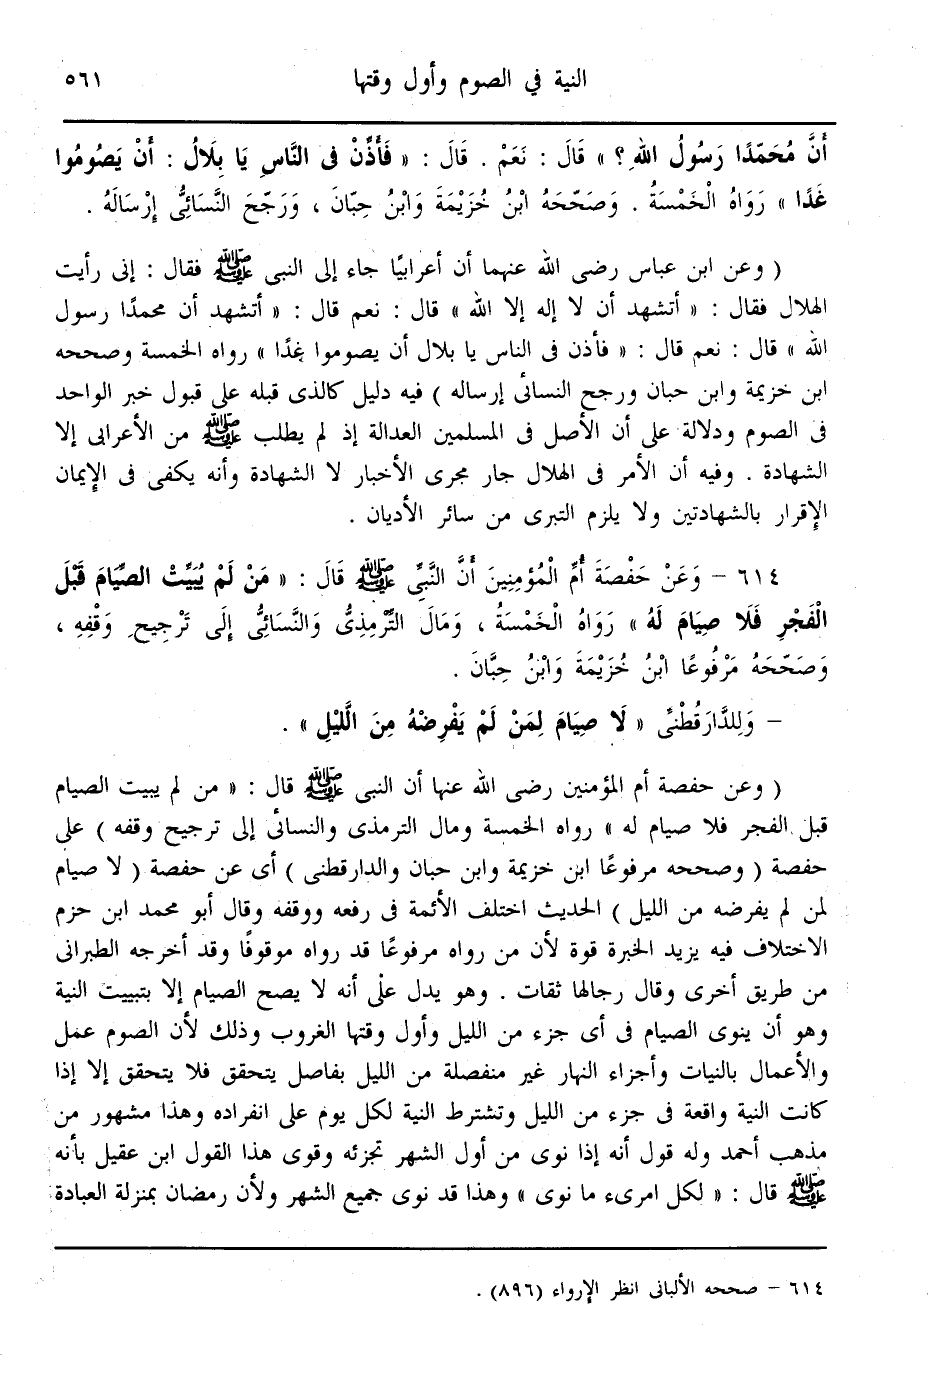 النية في الصوم وأول وقتها ٥٦١
أَنَّ مُحَمَّدًا رَسُولُ اللهِ ؟ » قَالَ : نَعَمْ . قَالَ : « فَأَذِّنْ فى النَّاسِ يَا بِلَالُ : أَنْ يَصُومُوا
غَدًا » رَوَاهُ الْخَمْسَةُ . وَصَحَّحَهُ ابْنُ خُزَيْمَةَ وَابْنُ حِبَّانَ ، وَرَجَّحَ النَّسَائِىُّ إِرْسَالَهُ .
( وعن ابن عباس رضى الله عنهما أن أعرابيًا جاء إلى النبى ﷺ فقال : إنى رأيت
الهلال فقال : « أتشهد أن لا إله إلا الله » قال : نعم قال : « أتشهد أن محمدًا رسول
الله » قال : نعم قال : « فأذن فى الناس يا بلال أن يصوموا غدًا » رواه الخمسة وصححه
ابن خزيمة وابن حبان ورجح النسائى إرساله ) فيه دليل كالذى قبله على قبول خبر الواحد
فى الصوم ودلالة على أن الأصل فى المسلمين العدالة إذ لم يطلب ﷺ من الأعرابى إلا
الشهادة . وفيه أن الأمر فى الهلال جار مجرى الأخبار لا الشهادة وأنه يكفى فى الإيمان
الإقرار بالشهادتين ولا يلزم التبرى من سائر الأديان .
٦١٤ – وَعَنْ حَفْصَةَ أُمِّ الْمُؤْمِنِينَ أَنَّ النَّبِىَّ ﷺ قَالَ : « مَنْ لَمْ يُبَيِّتْ الصِّيَامَ قَبْلَ
الْفَجْرِ فَلَا صِيَامَ لَهُ » رَوَاهُ الْخَمْسَةُ ، وَمَالَ التِّرْمِذِىُّ وَالنَّسَائِىُّ إِلَى تَرْجِيحِ وَقْفِهِ ،
وَصَحَّحَهُ مَرْفُوعًا ابْنُ خُزَيْمَةَ وَابْنُ حِبَّانَ .
– وَلِلدَّارَقُطْنِىِّ « لَا صِيَامَ لِمَنْ لَمْ يَفْرِضْهُ مِنَ الَّليْلِ » .
( وعن حفصة أم المؤمنين رضى الله عنها أن النبى ﷺ قال : « من لم يبيت الصيام
قبل الفجر فلا صيام له » رواه الخمسة ومال الترمذى والنسائى إلى ترجيح وقفه ) على
حفصة ( وصححه مرفوعًا ابن خزيمة وابن حبان والدارقطنى ) أى عن حفصة ( لا صيام
لمن لم يفرضه من الليل ) الحديث اختلف الأئمة فى رفعه ووقفه وقال أبو محمد ابن حزم
الاختلاف فيه يزيد الخبرة قوة لأن من رواه مرفوعًا قد رواه موقوفًا وقد أخرجه الطبرانى
من طريق أخرى وقال رجالها ثقات . وهو يدل على أنه لا يصح الصيام إلا بتبييت النية
وهو أن ينوى الصيام فى أى جزء من الليل وأول وقتها الغروب وذلك لأن الصوم عمل
والأعمال بالنيات وأجزاء النهار غير منفصلة من الليل بفاصل يتحقق فلا يتحقق إلا إذا
كانت النية واقعة فى جزء من الليل وتشترط النية لكل يوم على انفراده وهذا مشهور من
مذهب أحمد وله قول أنه إذا نوى من أول الشهر تجزئه وقوى هذا القول ابن عقيل بأنه
ﷺ قال : « لكل امرىء ما نوى » وهذا قد نوى جميع الشهر ولأن رمضان بمنزلة العبادة
٦١٤ – صححه الألبانى انظر الإرواء (٨٩٦) .